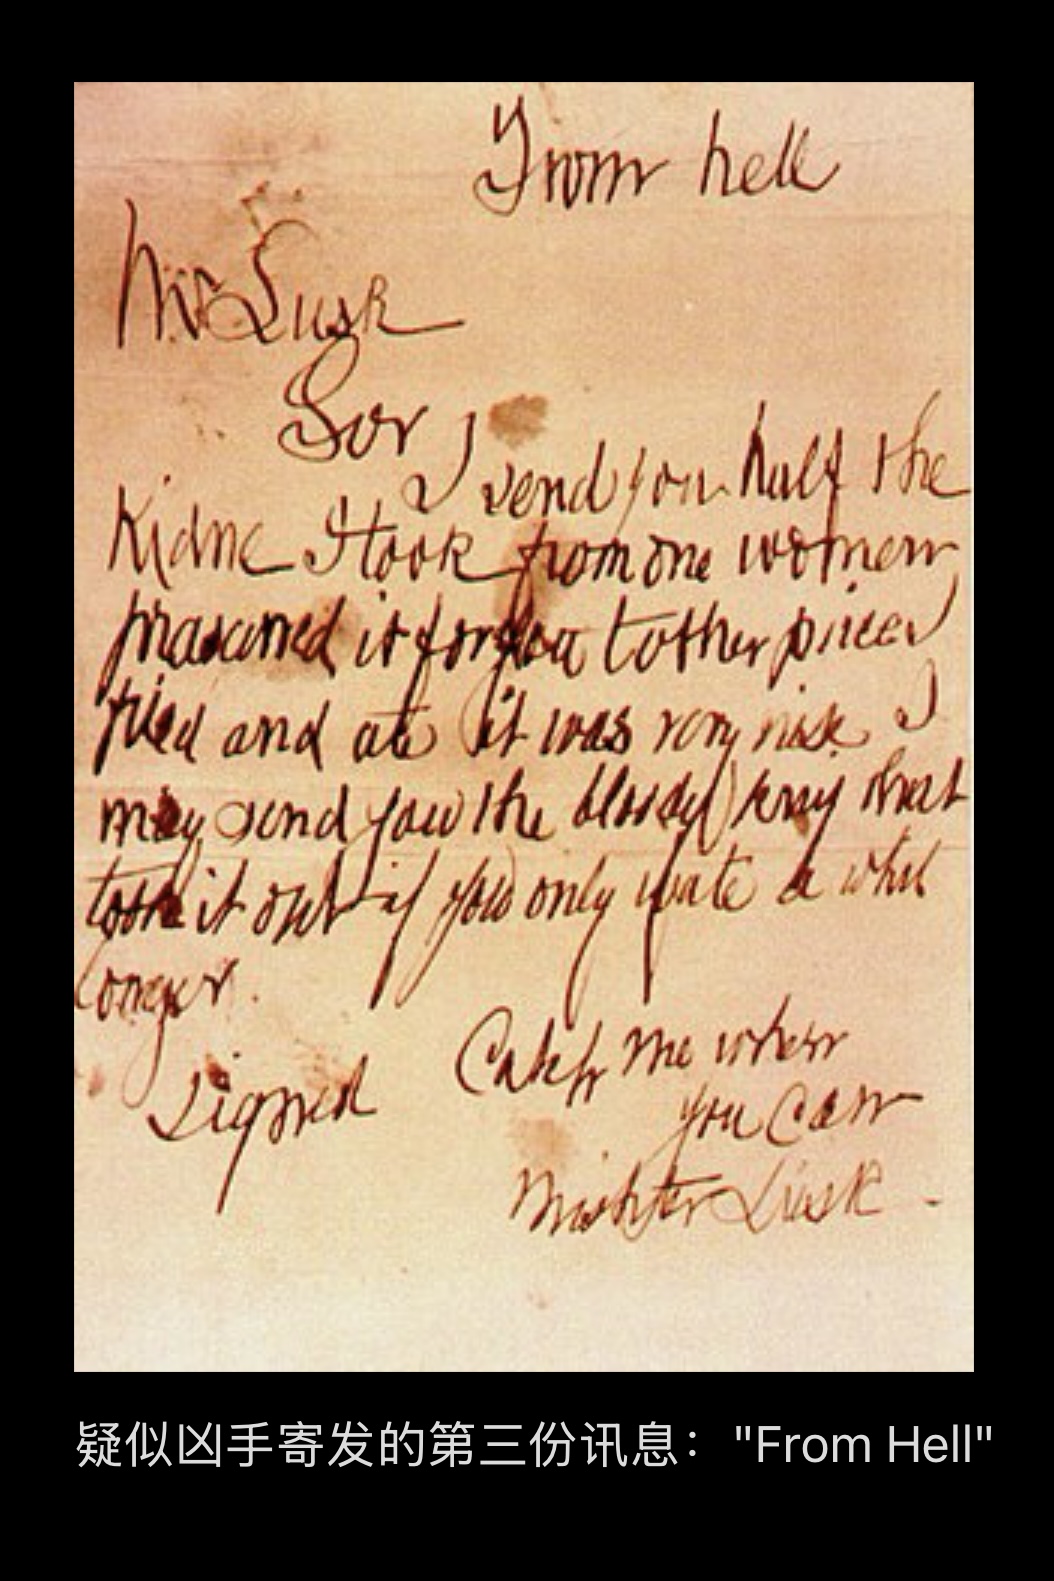 From hell
Mr Lusk
Sor
I send you half the
Kidne I took from one women
prasarved it for you tother piece I
fried and ate it was very nise I
may send you the bloody knif that
took it out if you only wate a whil
longer.
signed Catch me when
you Can
Mishter Lusk -
疑似凶手寄发的第三份讯息："From Hell"